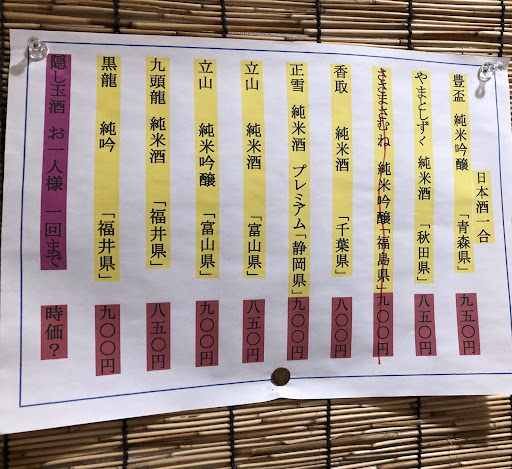 日本酒一合
豊盃 純米吟醸 「青森県」 九五〇円
やまとしずく 純米酒 「秋田県」 八五〇円
ささまさむね 純米吟醸「福島県」 九〇〇円
香取 純米酒 「千葉県」 八〇〇円
正雪 純米酒 プレミアム「静岡県」 九〇〇円
立山 純米酒 「富山県」 八五〇円
立山 純米吟醸 「富山県」 九〇〇円
九頭龍 純米酒 「福井県」 八五〇円
黒龍 純吟 「福井県」 九〇〇円
隠し玉酒 お一人様 一回まで 時価？